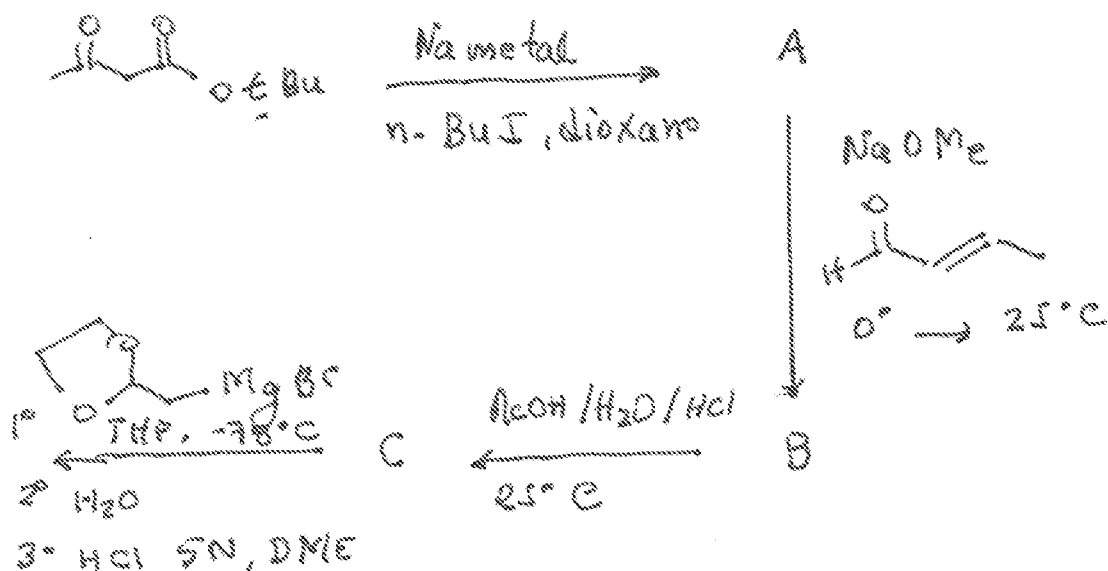 O O
O t Bu
Na metal
n- BuI, dioxano
A
Na O Me
O
H
0° → 25°C
B
AcOH/H₂O/HCl
25°C
C
O
O
Mg Br
1° THF, -78°C
2° H₂O
3° HCl 5N, DME